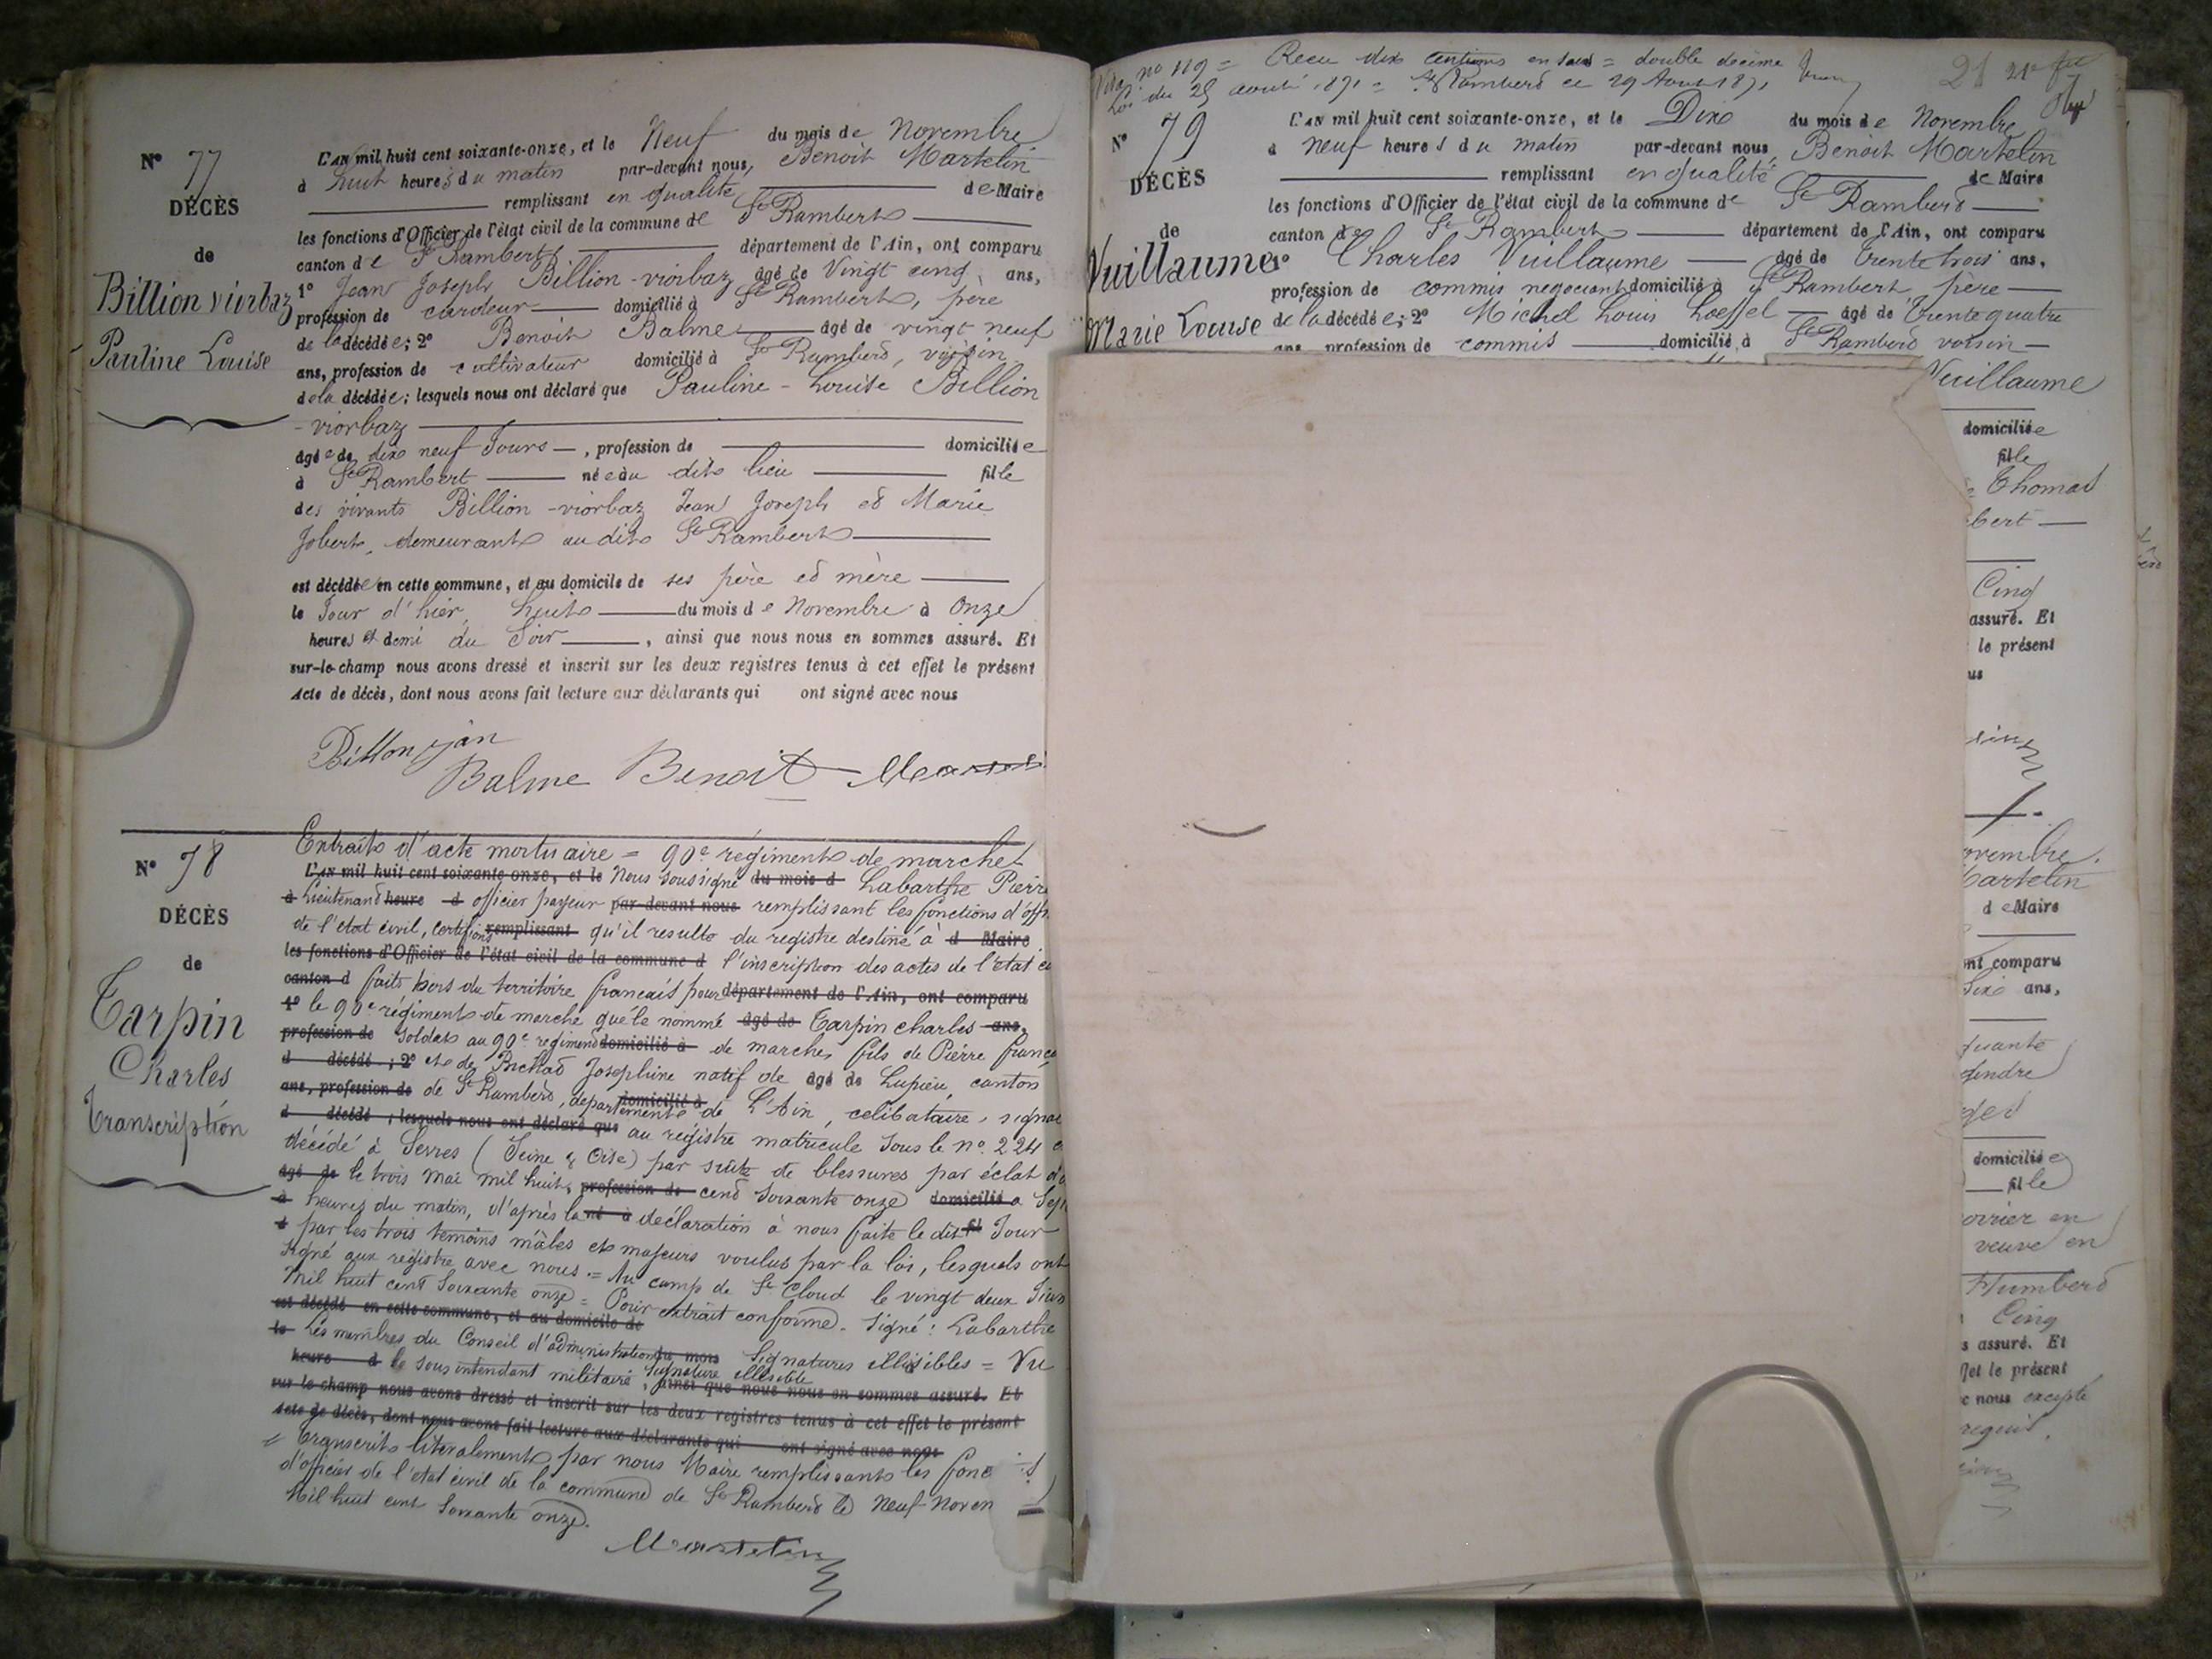 N° 77
DÉCÈS
de
Billion viorbaz
Pauline Louise
L'AN mil huit cent soixante-onze, et le Neuf du mois de Novembre
à huit heures du matin par-devant nous, Benoit Martelin
remplissant en qualité de Maire
les fonctions d'Officier de l'état civil de la commune de St Rambert
canton de St Rambert département de l'Ain, ont comparu
1° Jean Joseph Billion-viorbaz âgé de Vingt cinq ans,
profession de cardeur domicilié à St Rambert, père
de la décédée; 2° Benoit Balme âgé de vingt neuf
ans, profession de cultivateur domicilié à St Rambert, voisin
de la décédée; lesquels nous ont déclaré que Pauline-Louise Billion
-viorbaz
âgée de dix neuf Jours, profession de domiciliée
à St Rambert née au dit lieu fille
des vivants Billion-viorbaz Jean Joseph et Marie
Jobert, demeurant au dit St Rambert
est décédée en cette commune, et au domicile de ses père et mère
le Jour d'hier, huit du mois de Novembre à Onze
heures et demi du Soir, ainsi que nous nous en sommes assuré. Et
sur-le-champ nous avons dressé et inscrit sur les deux registres tenus à cet effet le présent
Acte de décès, dont nous avons fait lecture aux déclarants qui ont signé avec nous
Billon jan
Balme Benoit
N° 78
DÉCÈS
de
Tarpin
Charles
Transcription
Extrait d'acte mortuaire = 90e régiment de marche
L'AN mil huit cent soixante-onze, et le Nous soussigné du mois d Labarthe Pierre
à Lieutenant heure d officier payeur par-devant nous remplissant les fonctions d'offi
de l'etat civil, certifions remplissant qu'il resulte du registre destiné à d Maire
les fonctions d'Officier de l'état civil de la commune d l'inscription des actes de l'etat ci
canton d faits hors du territoire francais pour département de l'Ain, ont comparu
1° le 90e régiment de marche que le nommé âgé de Tarpin charles ans,
profession de Soldat au 90e regiment domicilié à de marche, fils de Pierre franço
d décédé; 2° et de Josephine natif de âgé de Lupieu, canton
ans, profession de de St Rambert, departement domicilié à de L'Ain, celibataire, signa
d décédé; lesquels nous ont déclaré que au registre matricule Sous le n° 224
décédé à Sevres (Seine & Oise) par suite de blessures par éclat d'o
âgé de le trois Mai mil huit, profession de cent soixante onze domicilié a Sept
à heures du matin, d'après la né à declaration à nous faite le dit fil Jour
d par les trois temoins mâles et majeurs voulus par la loi, lesquels ont
signé aux registre avec nous. = Au camp de St Cloud le vingt deux Juin
Mil huit cent Soixante onze = Pour extrait conforme. Signé: Labarthe
est décédé en cette commune, et au domicile de
le Les membres du Conseil d'administration du mois Signatures illisibles = Vu
heure d le sous intendant militaire, Signature illisible ainsi que nous nous en sommes assuré. Et
sur le champ nous avons dressé et inscrit sur les deux registres tenus à cet effet le présent
Acte de décès, dont nous avons fait lecture aux déclarants qui ont signé avec nous
= Transcrit literalement par nous Maire remplissant les fonc
d'officier de l'etat civil de la commune de St Rambert le Neuf Novem
Mil huit cent Soixante onze.
Martelin
Nota n° 119 = Recu dix centimes en sus = double decime
Loi du 23 août 1871 = St Rambert ce 29 Aout 1871
21 21e
N° 79
DÉCÈS
de
Vuillaume
Marie Louise
L'AN mil huit cent soixante-onze, et le Dix du mois de Novembre
à neuf heures du matin par-devant nous Benoit Martelin
remplissant en qualité de Maire
les fonctions d'Officier de l'état civil de la commune de St Rambert
canton de St Rambert département de l'Ain, ont comparu
1° Charles Vuillaume âgé de Trente trois ans,
profession de commis negociant domicilié à St Rambert père
de la décédée; 2° Michel Louis Loeffel âgé de Trente quatre
ans profession de commis domicilié à St Rambert voisin
Vuillaume
domiciliée
fille
Thomas
bert
Cinq
assuré. Et
le présent
us
ovembre.
Martelin
de Maire
ont comparu
Six ans,
quante
gendre
domiciliée
fille
veuve en
Humbert
Cinq
s assuré. Et
ffet le présent
c nous excepté
requis.